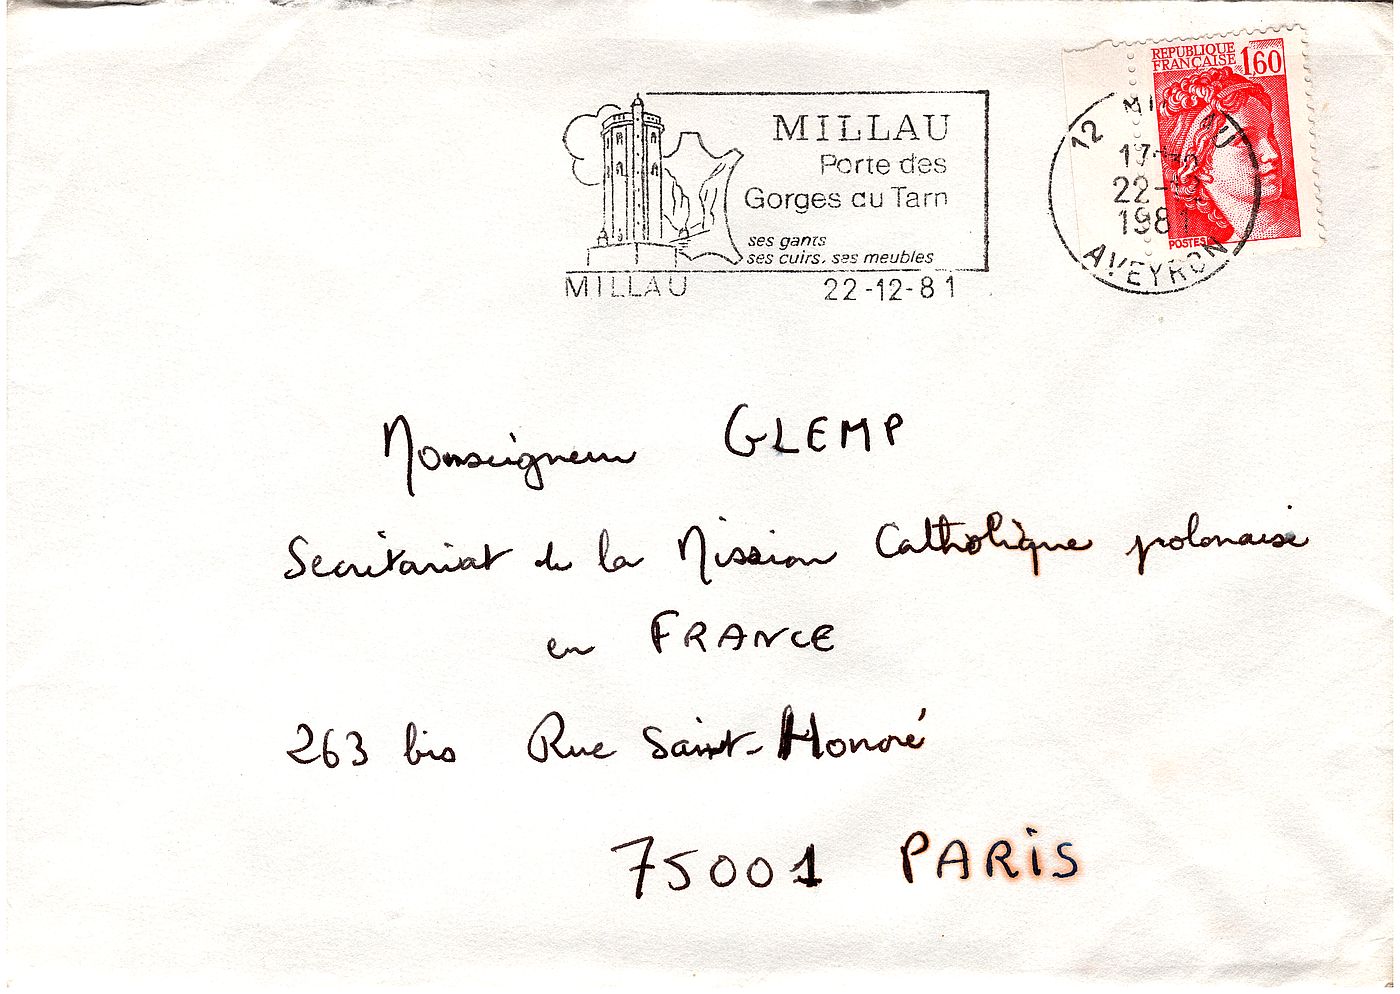 MILLAU
Porte des
Gorges du Tarn
ses gants
ses cuirs, ses meubles
MILLAU 22-12-81
REPUBLIQUE
FRANÇAISE 1,60
POSTES
12 MILLAU
22-12
1981
AVEYRON
Monseigneur GLEMP
Secrétariat de la Mission Catholique polonaise
en FRANCE
263 bis Rue Saint-Honoré
75001 PARIS